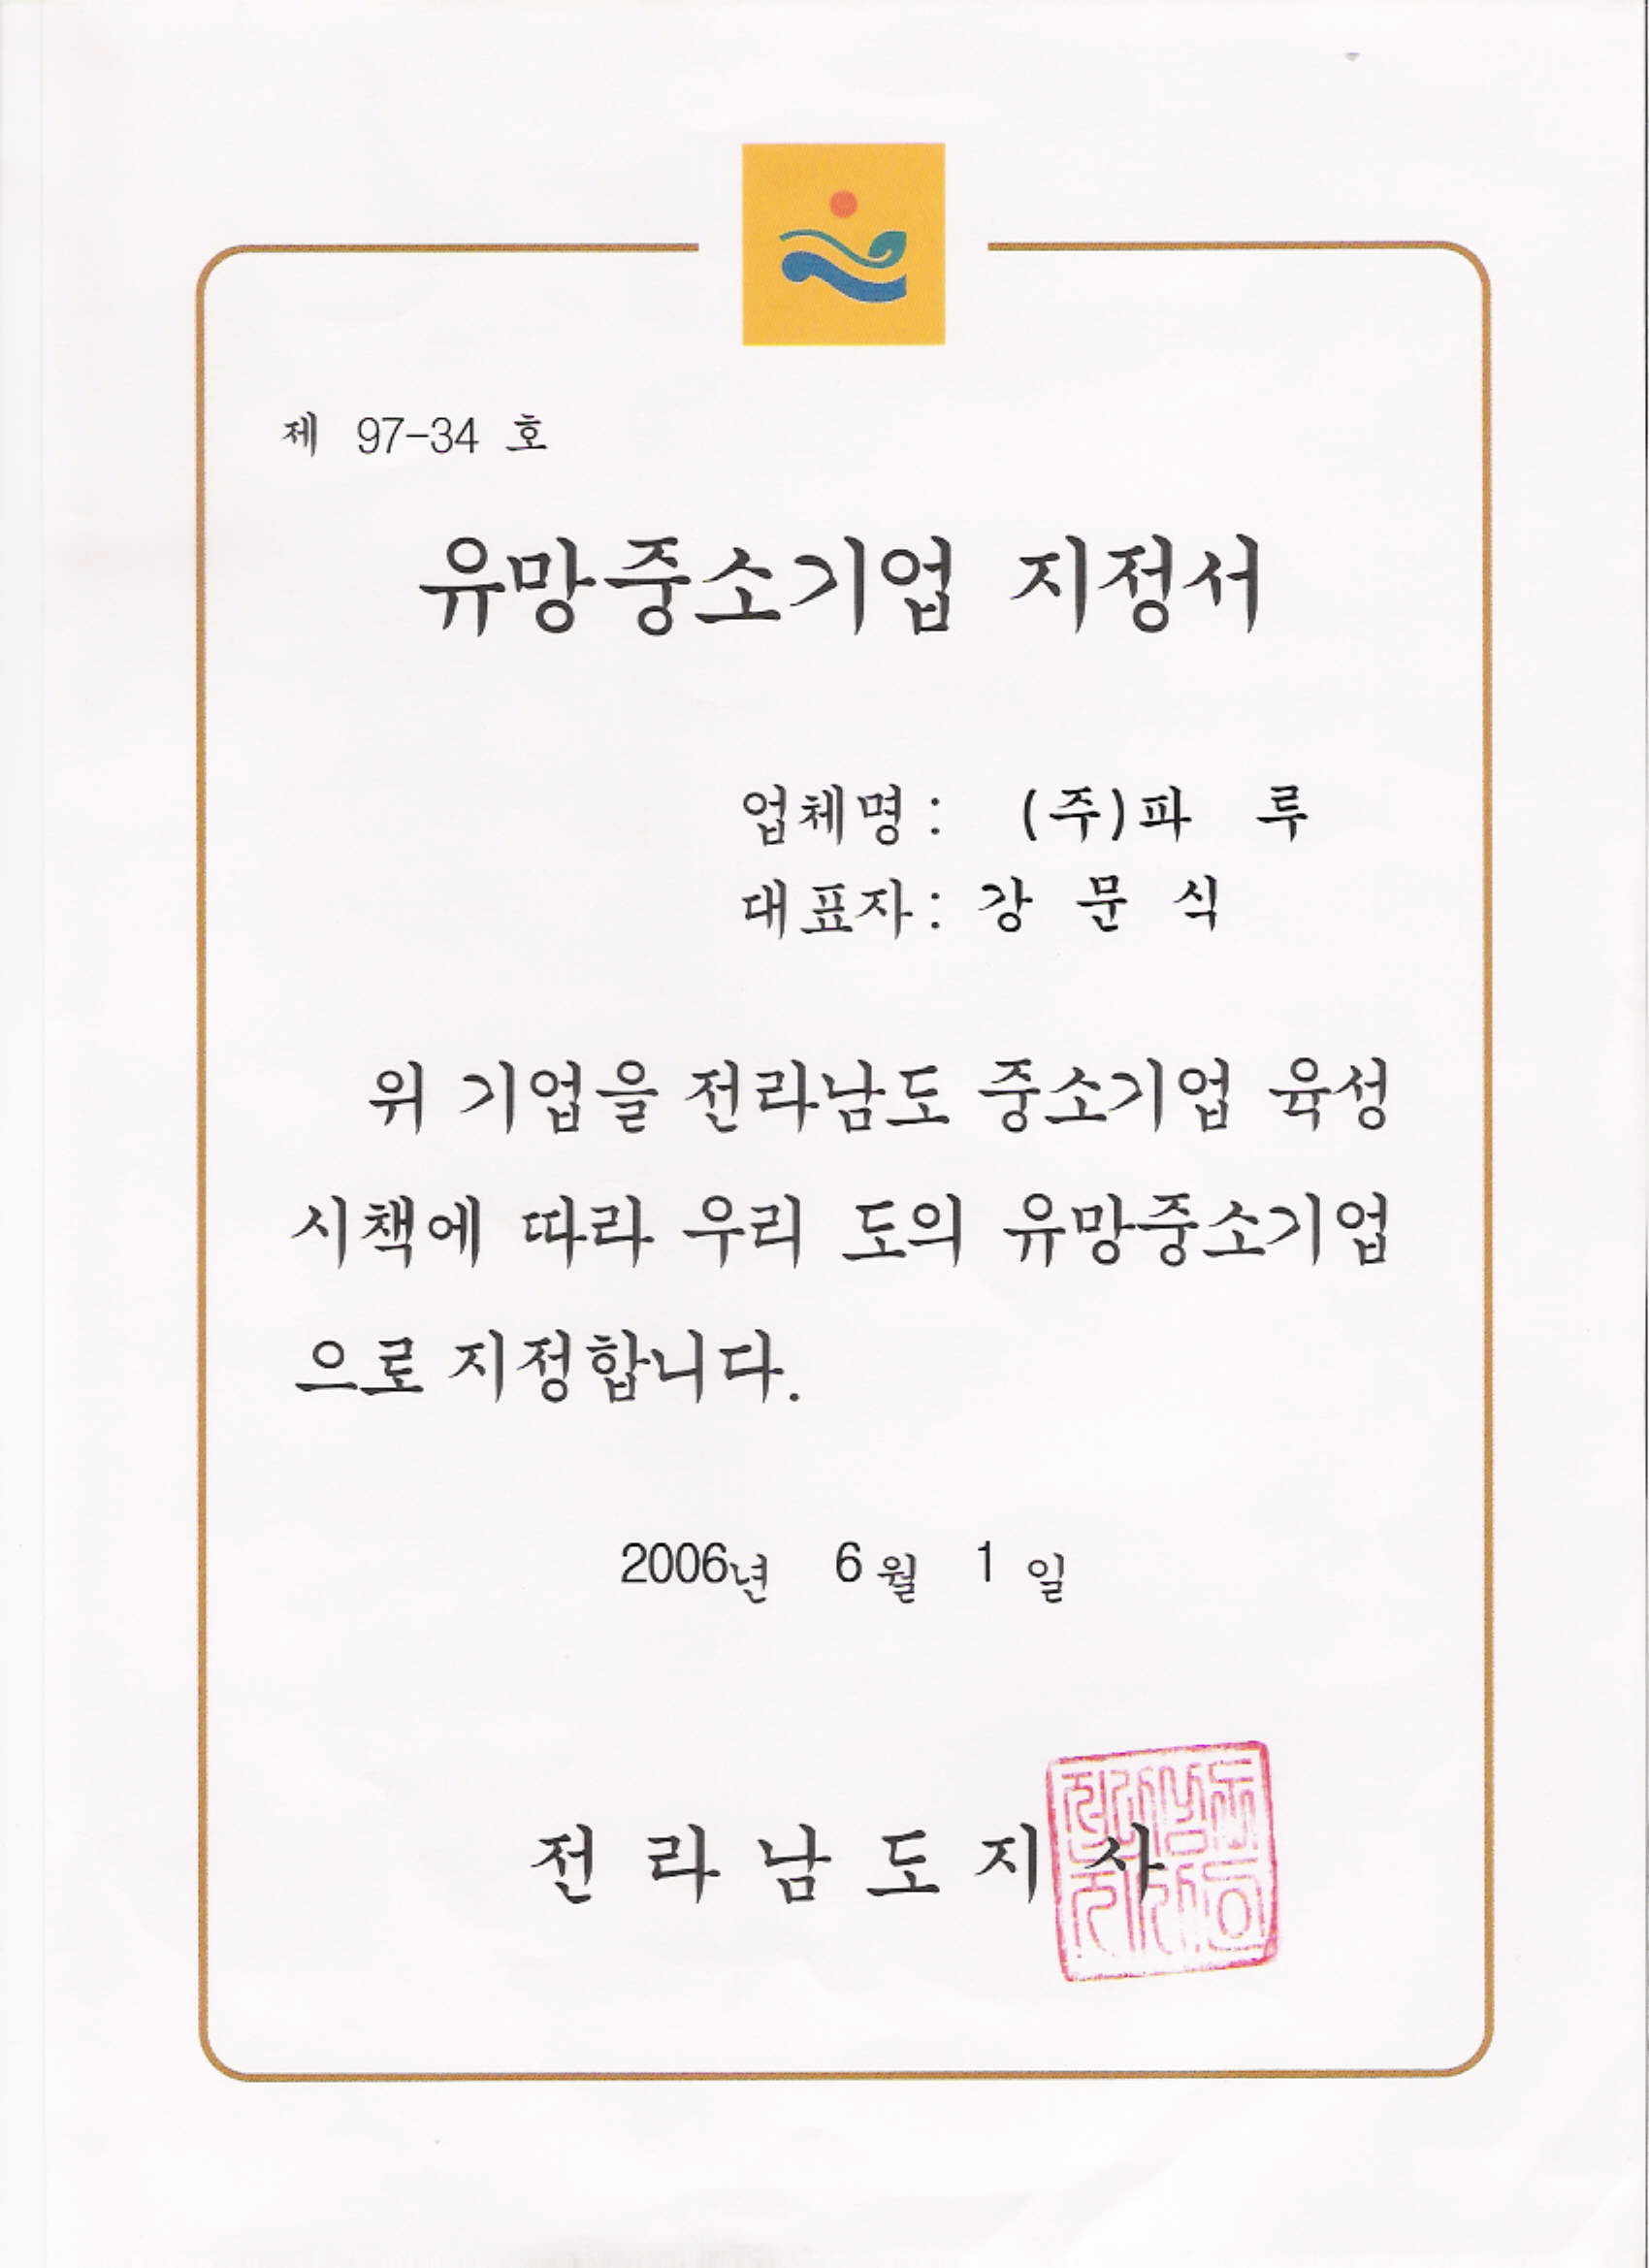 제 97-34 호
유망중소기업 지정서
업체명 : (주)파 루
대표자 : 강 문 식
위 기업을 전라남도 중소기업 육성
시책에 따라 우리 도의 유망중소기업
으로 지정합니다.
2006년 6월 1일
전 라 남 도 지 사
전라남도
지사인